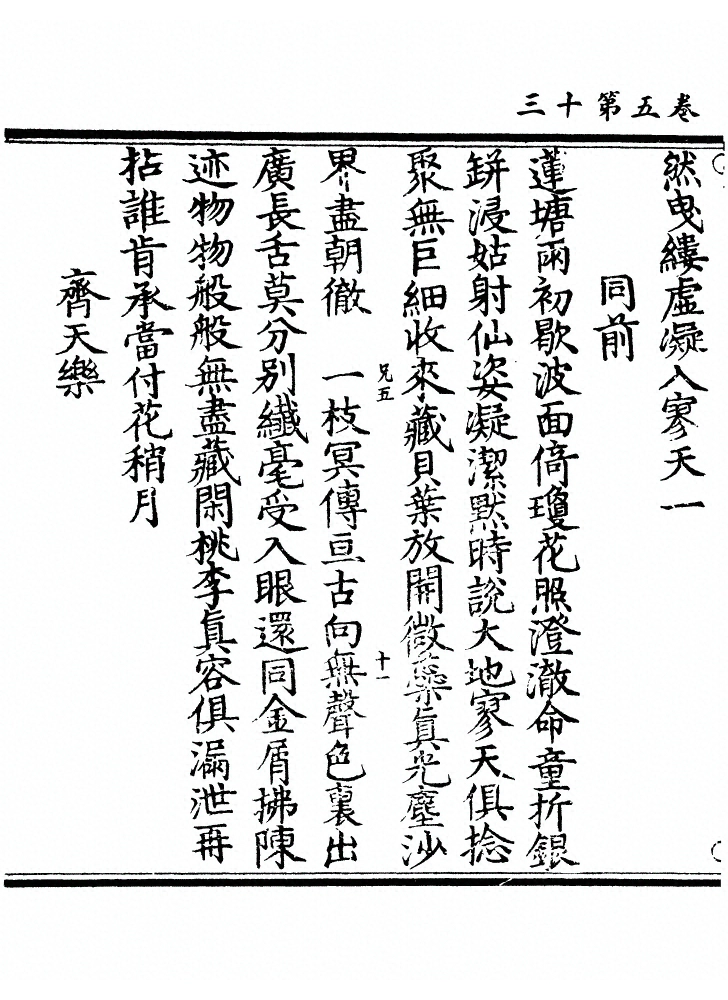 三十第五卷
然曳縷虛凝入寥天一
同前
蓮塘雨初歇波面倚瓊花照澄澈命童折銀
缾浸姑射仙姿凝潔默時說大地寥天俱捻
聚無巨細收來藏貝葉放開微蘂眞光塵沙
兄五
十一
界盡朝徹　一枝冥傳亘古向無聲色裏出
廣長舌莫分別纖毫受入眼還同金屑拂陳
迹物物般般無盡藏閑桃李眞容俱漏泄再
拈誰肯承當付花稍月
齊天樂